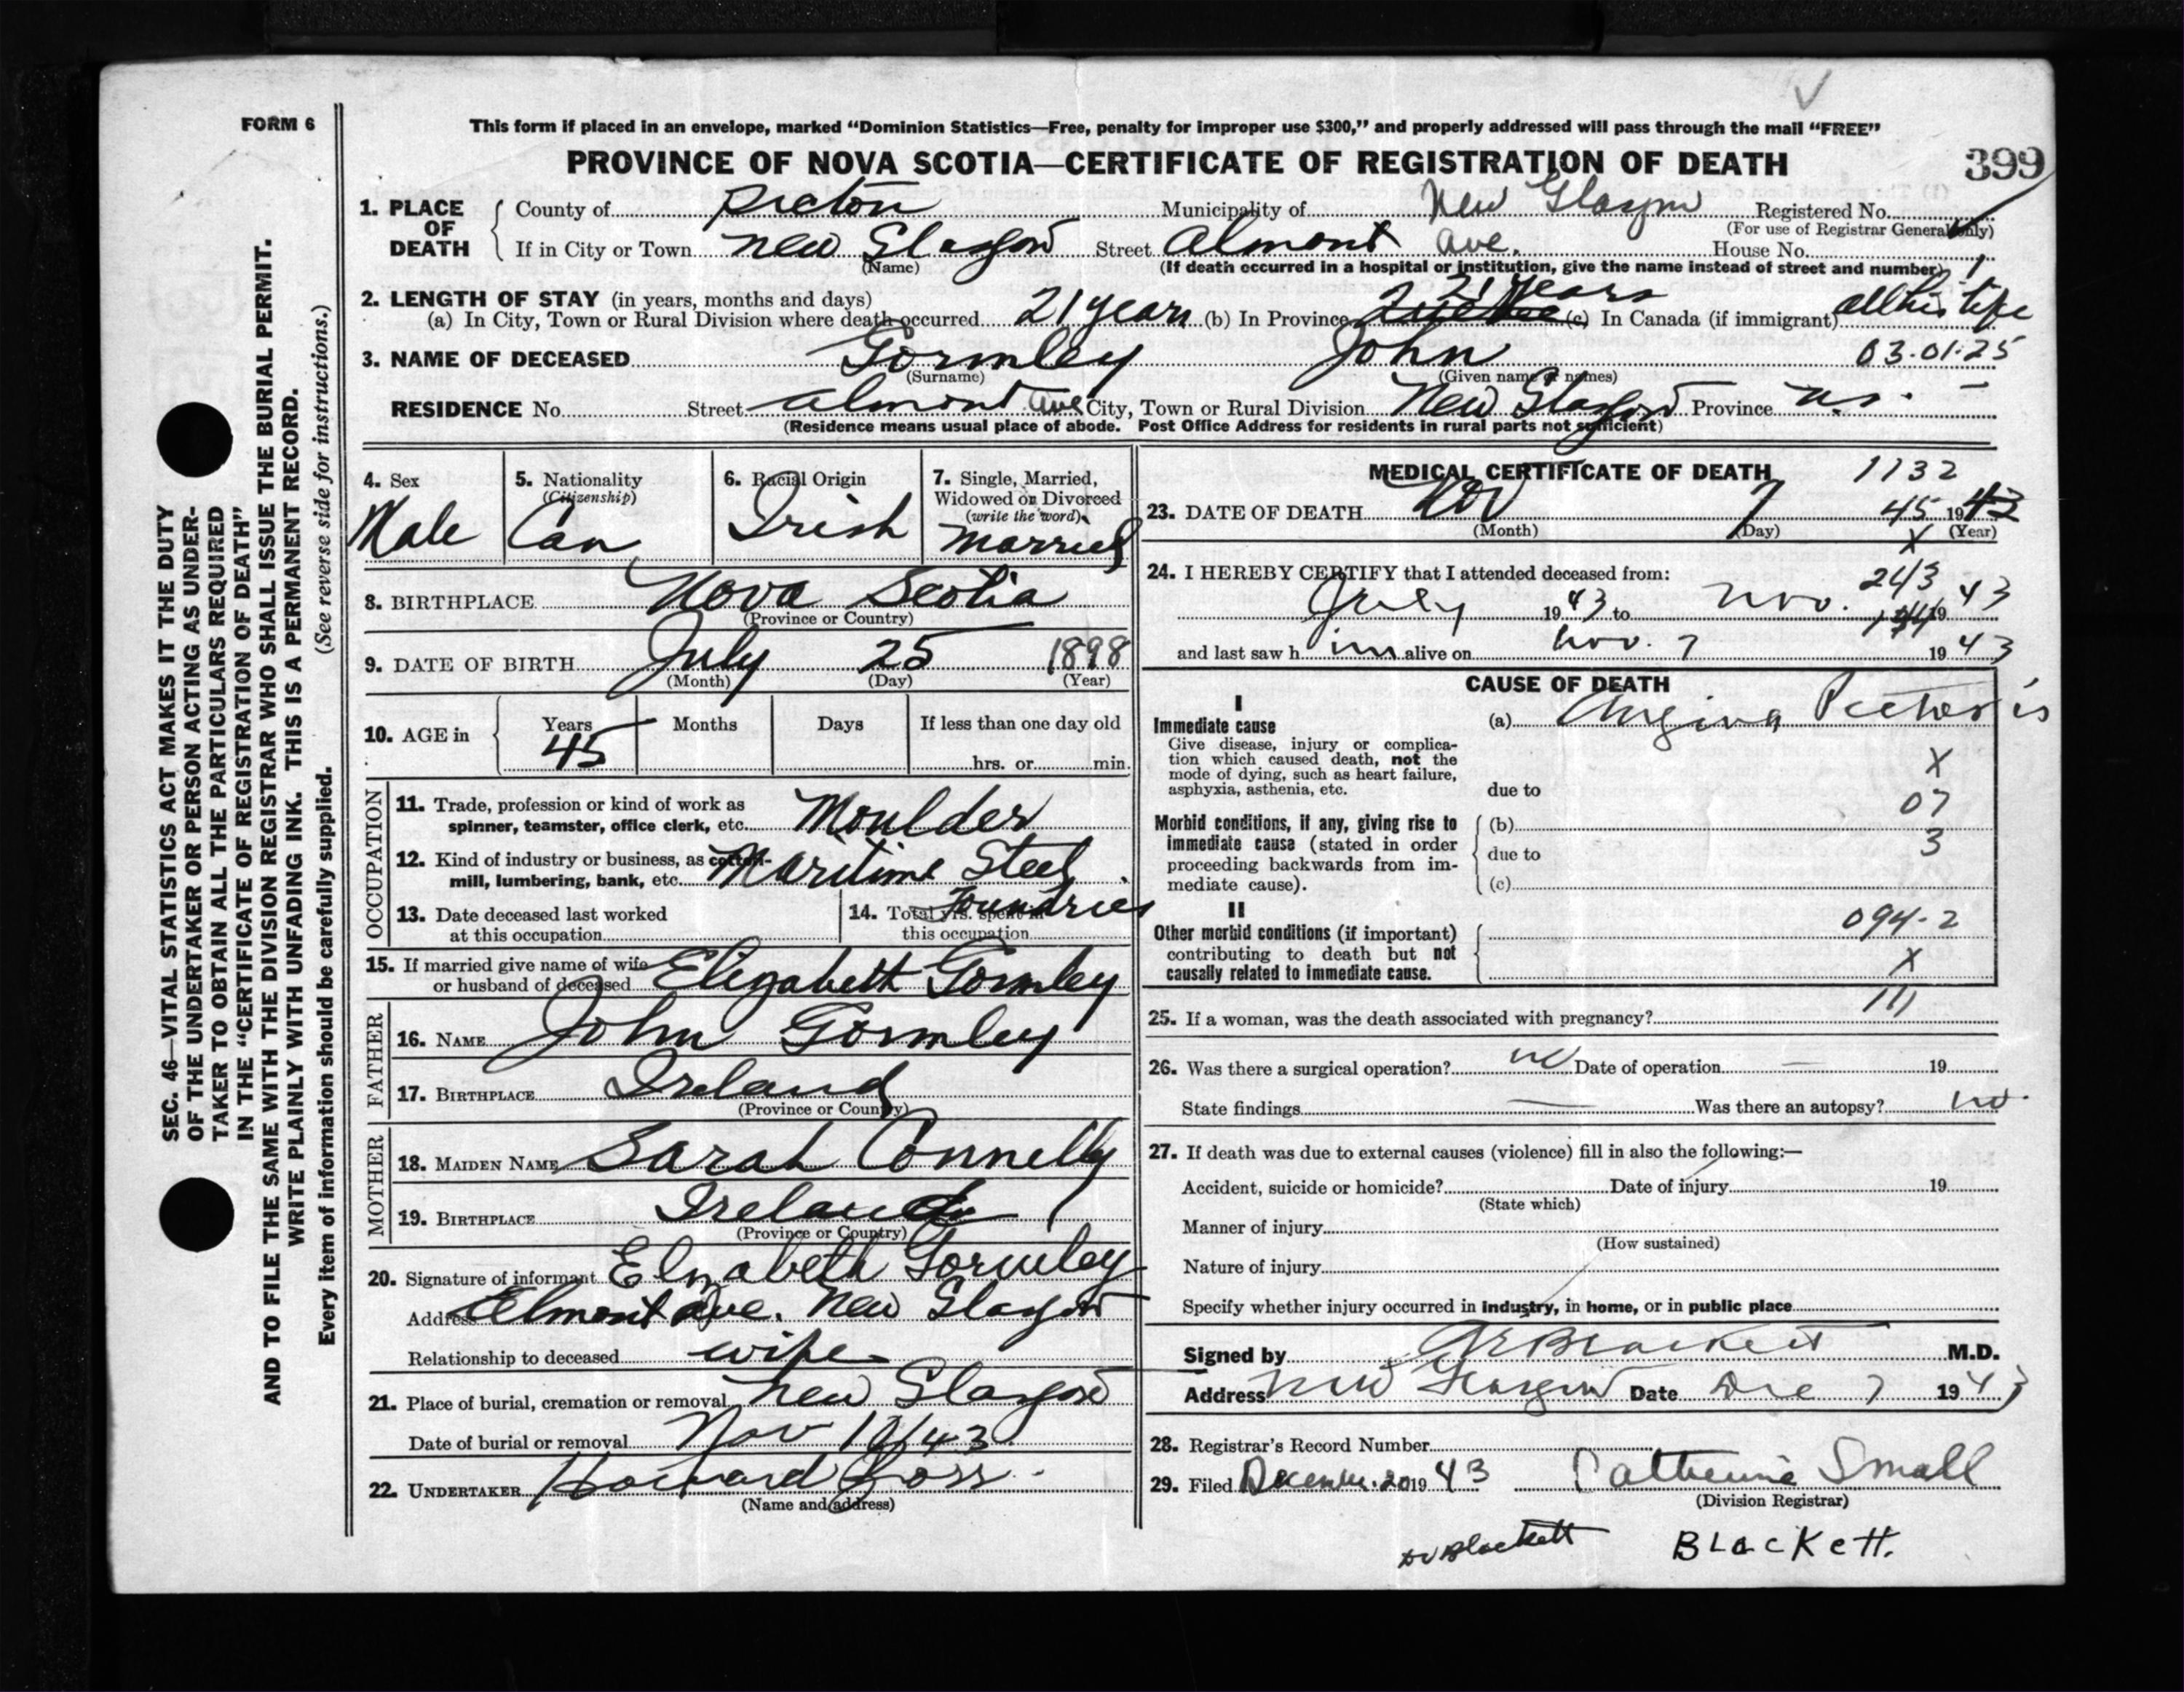 FORM 6
This form if placed in an envelope, marked “Dominion Statistics—Free, penalty for improper use $300,” and properly addressed will pass through the mail “FREE”
PROVINCE OF NOVA SCOTIA—CERTIFICATE OF REGISTRATION OF DEATH
399
1. PLACE OF DEATH
County of Pictou Municipality of New Glasgow Registered No.
(For use of Registrar General only)
If in City or Town New Glasgow Street Almont Ave. House No.
(Name)
(If death occurred in a hospital or institution, give the name instead of street and number)
2. LENGTH OF STAY (in years, months and days)
21 years
(a) In City, Town or Rural Division where death occurred 21 years (b) In Province (c) In Canada (if immigrant) all his life
3. NAME OF DECEASED Gormley John 03.01.25
(Surname) (Given name or names)
RESIDENCE No. Street Almont Ave City, Town or Rural Division New Glasgow Province N.S.
(Residence means usual place of abode. Post Office Address for residents in rural parts not sufficient)
4. Sex Male
5. Nationality (Citizenship) Can
6. Racial Origin Irish
7. Single, Married, Widowed or Divorced (write the word) Married
8. BIRTHPLACE Nova Scotia
(Province or Country)
9. DATE OF BIRTH July 25 1898
(Month) (Day) (Year)
10. AGE in Years 45 Months Days If less than one day old
hrs. or min.
OCCUPATION
11. Trade, profession or kind of work as
spinner, teamster, office clerk, etc. Moulder
12. Kind of industry or business, as cotton-
mill, lumbering, bank, etc. Maritime Steel
Foundries
13. Date deceased last worked
at this occupation
14. Total yrs. spent in
this occupation
15. If married give name of wife
or husband of deceased Elizabeth Gormley
FATHER
16. NAME John Gormley
17. BIRTHPLACE Ireland
(Province or Country)
MOTHER
18. MAIDEN NAME Sarah Connelly
19. BIRTHPLACE Ireland
(Province or Country)
20. Signature of informant Elizabeth Gormley
Address Elmont Ave. New Glasgow
Relationship to deceased wife
21. Place of burial, cremation or removal New Glasgow
Date of burial or removal Nov 10/43
22. UNDERTAKER Howard Ross
(Name and address)
MEDICAL CERTIFICATE OF DEATH 1132
23. DATE OF DEATH Nov 7 45 1943
(Month) (Day) (Year)
X
24. I HEREBY CERTIFY that I attended deceased from:
243
July 1943 to Nov. 1943
and last saw him alive on Nov. 7 1943
CAUSE OF DEATH
I
Immediate cause (a) Angina Pectoris
Give disease, injury or complica-
tion which caused death, not the
mode of dying, such as heart failure,
asphyxia, asthenia, etc.
due to
X
07
3
Morbid conditions, if any, giving rise to
immediate cause (stated in order
proceeding backwards from im-
mediate cause).
(b)
due to
(c)
II
Other morbid conditions (if important)
contributing to death but not
causally related to immediate cause.
094-2
X
111
25. If a woman, was the death associated with pregnancy?
26. Was there a surgical operation? no Date of operation — 19
State findings — Was there an autopsy? no.
27. If death was due to external causes (violence) fill in also the following:—
Accident, suicide or homicide? Date of injury 19
(State which)
Manner of injury
(How sustained)
Nature of injury
Specify whether injury occurred in industry, in home, or in public place
Signed by Blackett M.D.
Address New Glasgow Date Dec 7 1943
28. Registrar's Record Number
29. Filed December 20 1943 Catherine Small
(Division Registrar)
Dr Blackett BLACKETT.
SEC. 46—VITAL STATISTICS ACT MAKES IT THE DUTY
OF THE UNDERTAKER OR PERSON ACTING AS UNDER-
TAKER TO OBTAIN ALL THE PARTICULARS REQUIRED
IN THE “CERTIFICATE OF REGISTRATION OF DEATH”
AND TO FILE THE SAME WITH THE DIVISION REGISTRAR WHO SHALL ISSUE THE BURIAL PERMIT.
WRITE PLAINLY WITH UNFADING INK. THIS IS A PERMANENT RECORD.
Every item of information should be carefully supplied. (See reverse side for instructions.)